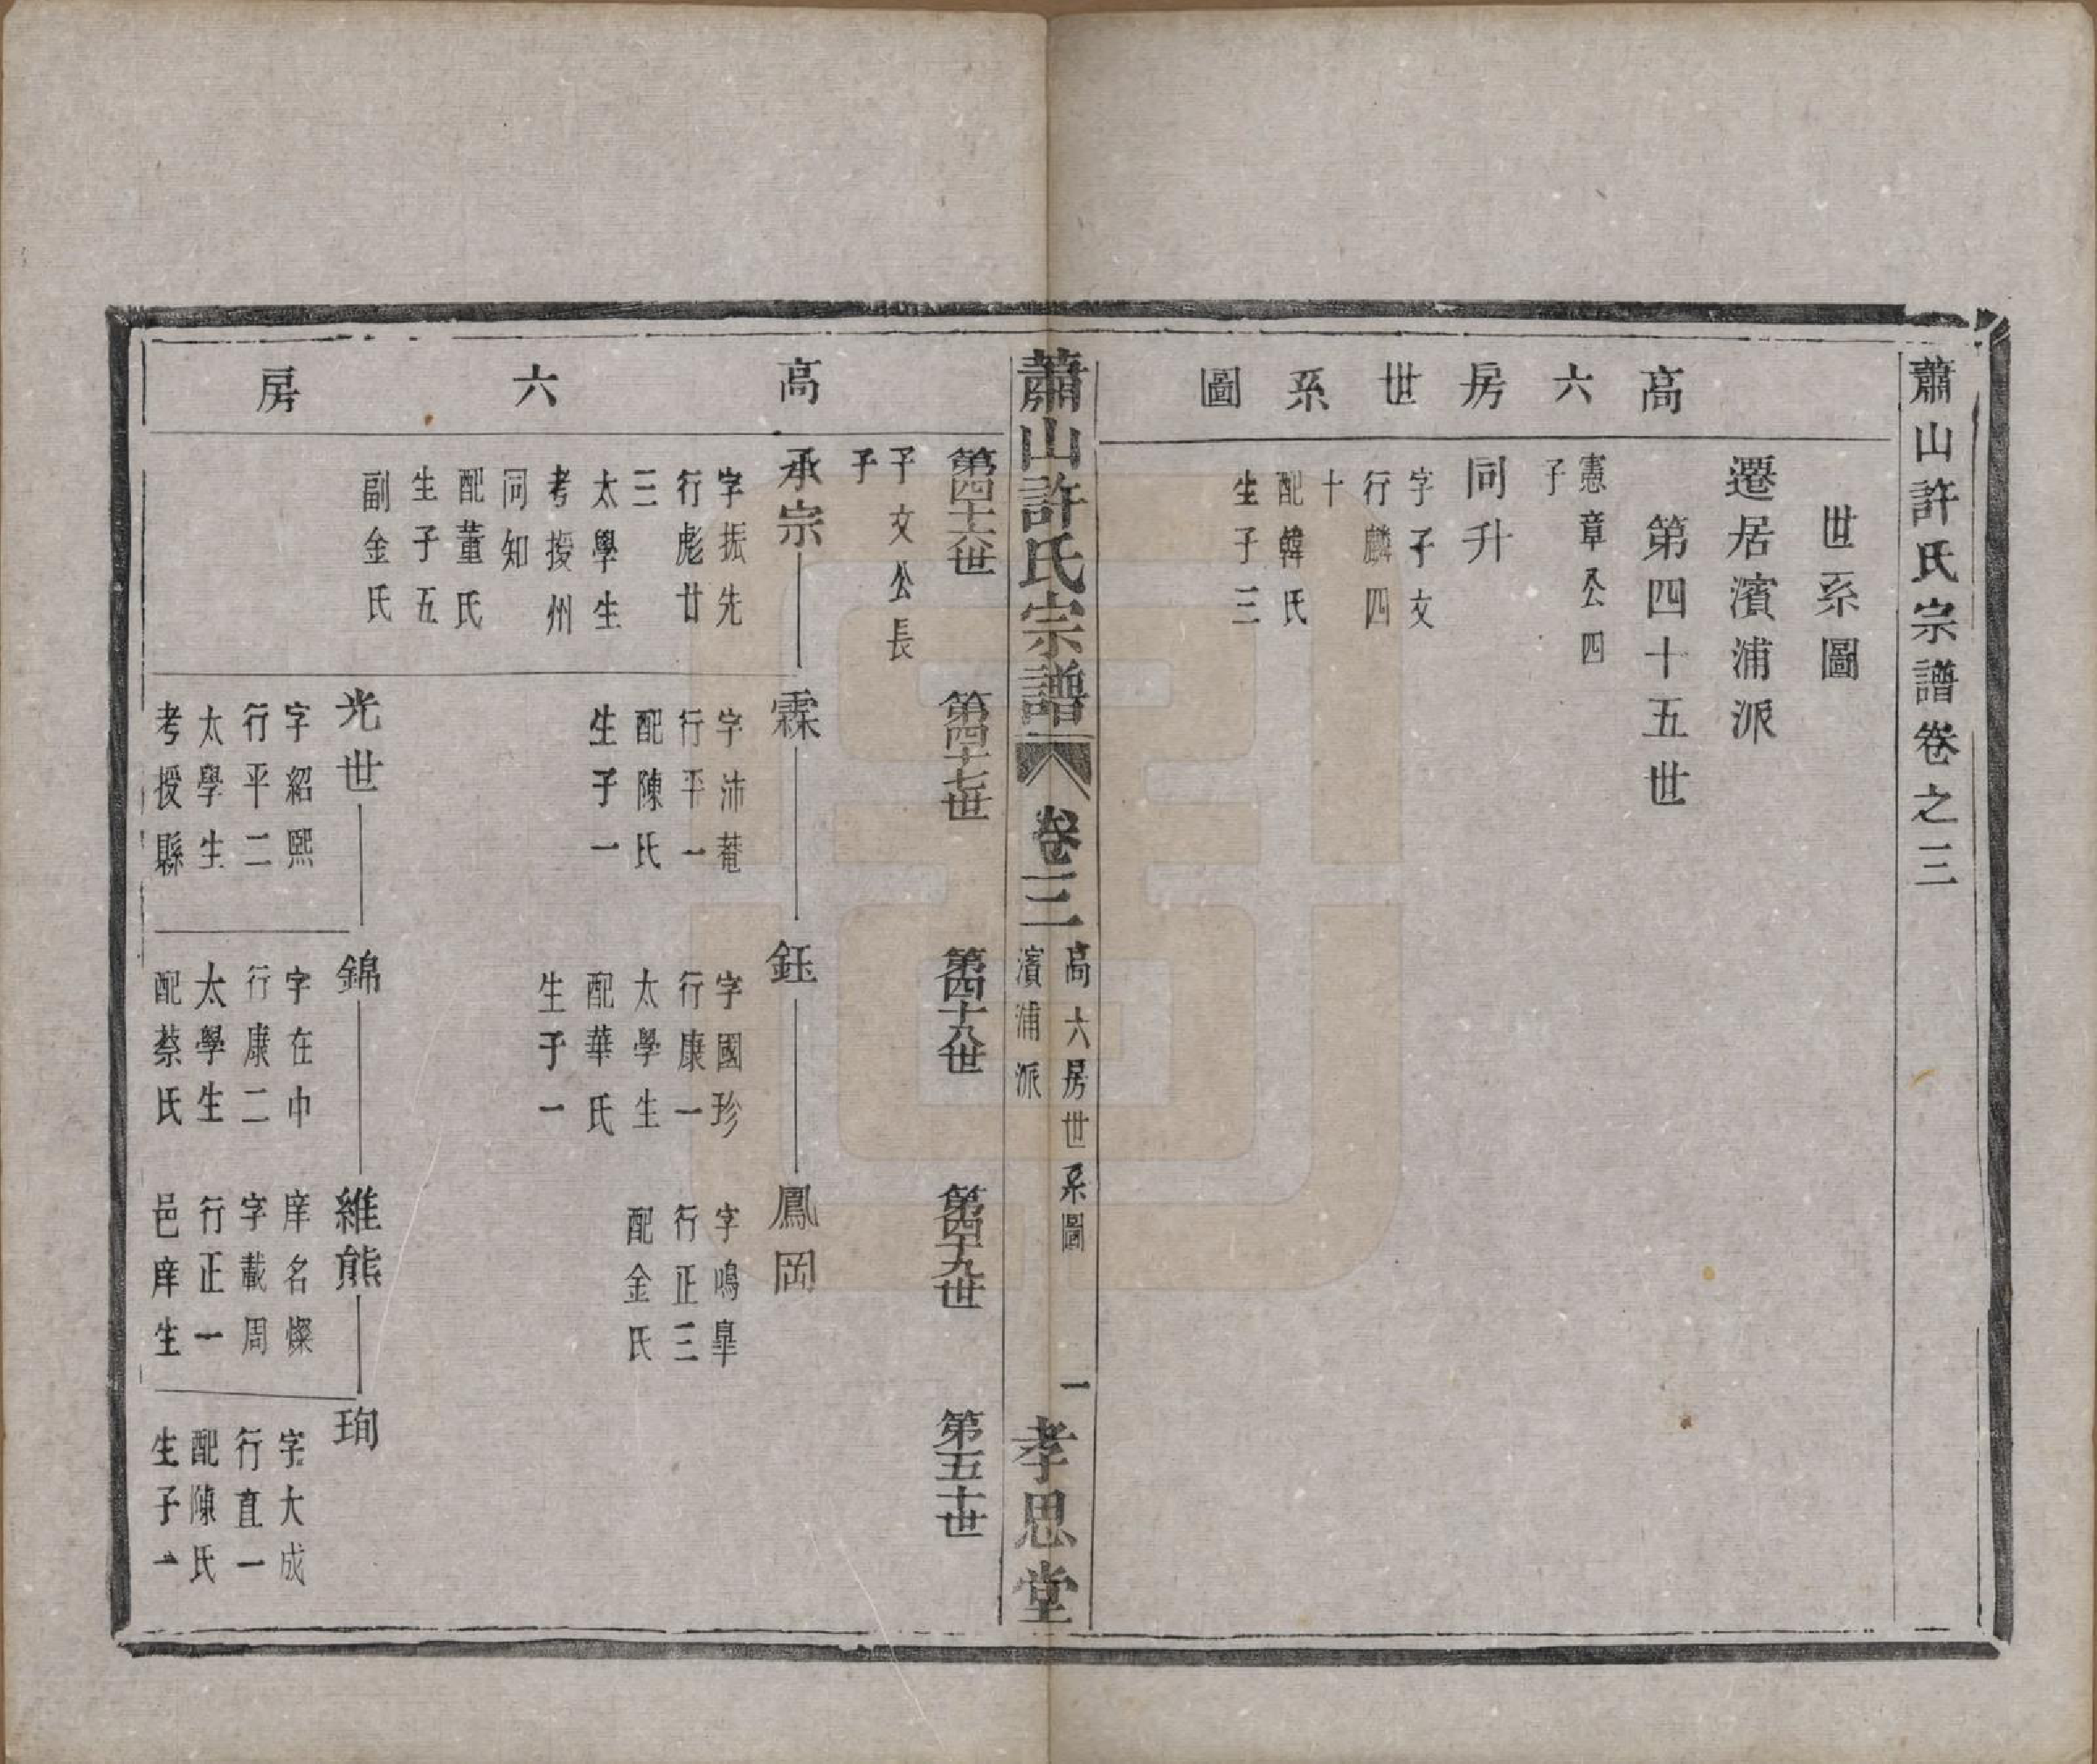 蕭山許氏宗譜卷之三
高六房世系圖
世系圖
遷居濱浦派
第四十五世
憲章公四
子
同升
字子文
行麟四
十
配韓氏
生子三
蕭山許氏宗譜
卷三
高六房世系圖
濱浦派
一
孝思堂
高六房
第四十六世
第四十七世
第四十八世
第四十九世
第五十世
子文公長
子
承宗
字振先
行彪廿
三
太學生
考授州
同知
配董氏
生子五
副金氏
霖
字沛菴
行平一
配陳氏
生子一
鈺
字國珍
行康一
太學生
配華氏
生子一
鳳岡
字鳴皐
行正三
配金氏
光世
字紹熙
行平二
太學生
考授縣
錦
字在中
行康二
太學生
配蔡氏
維熊
庠名燦
字載周
行正一
邑庠生
珣
字大成
行直一
配陳氏
生子一